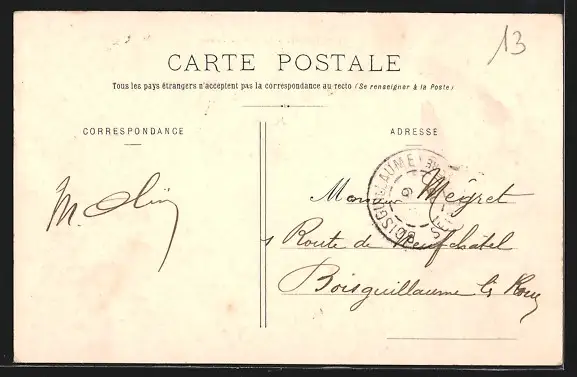 13
CARTE POSTALE
Tous les pays étrangers n'acceptent pas la correspondance au recto (Se renseigner à la Poste)
CORRESPONDANCE
ADRESSE
M.
Monsieur Mégret
Route de Neufchâtel
Boisguillaume lis Rouen
BOISGUILLAUME